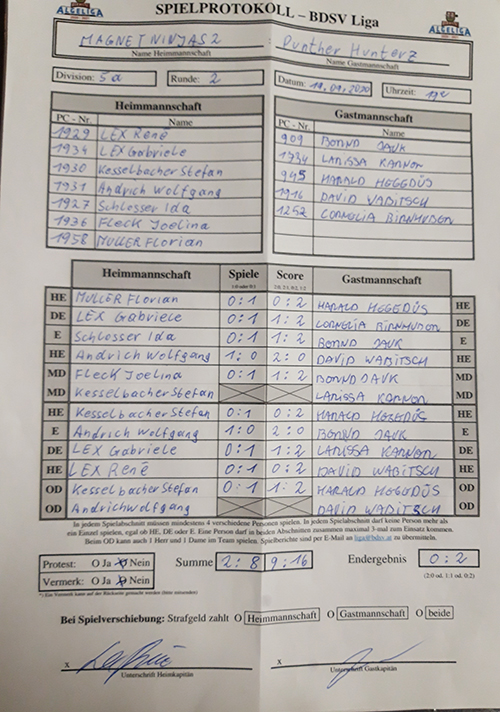 ALGELIGA SPIELPROTOKOLL – BDSV Liga ALGELIGA
MAGNET NINJAS 2 : Punther Hunterz
Name Heimmannschaft Name Gastmannschaft
Division: 5a Runde: 2 Datum: 19.09.2020 Uhrzeit:
Heimmannschaft
PC - Nr. Name
1929 LEX René
1934 LEX Gabriele
1930 Kesselbacher Stefan
1931 Andrich Wolfgang
1927 Schlosser Ida
1936 Fleck Joelina
1958 MULLER Florian
Gastmannschaft
PC - Nr. Name
909 BORND JAUK
1734 LARISSA KARNON
945 HARALD HEGEDÜS
1916 DAVID WABITSCH
1252 CORNELIA
Heimmannschaft Spiele Score Gastmannschaft
1:0 oder 0:1 2:0, 2:1, 0:2, 1:2
HE MULLER Florian 0:1 0:2 HARALD HEGEDÜS HE
DE LEX Gabriele 0:1 1:2 CORNELIA DE
E Schlosser Ida 0:1 1:2 BORND JAUK E
HE Andrich Wolfgang 1:0 2:0 DAVID WABITSCH HE
MD Fleck Joelina 0:1 1:2 BORND JAUK MD
MD Kesselbacher Stefan LARISSA KARNON MD
HE Kesselbacher Stefan 0:1 0:2 HARALD HEGEDÜS HE
E Andrich Wolfgang 1:0 2:0 BORND JAUK E
DE LEX Gabriele 0:1 1:2 LARISSA KARNON DE
HE LEX René 0:1 0:2 DAVID WABITSCH HE
OD Kesselbacher Stefan 0:1 1:2 HARALD HEGEDÜS OD
OD Andrich Wolfgang DAVID WABITSCH OD
In jedem Spielabschnitt müssen mindestens 4 verschiedene Personen spielen. In jedem Spielabschnitt darf keine Person mehr als
ein Einzel spielen, egal ob HE, DE oder E. Eine Person darf in beiden Abschnitten zusammen maximal 3-mal zum Einsatz kommen.
Beim OD kann auch 1 Herr und 1 Dame im Team spielen. Spielberichte sind per E-Mail an liga@bdsv.at zu übermitteln.
Protest: O Ja O Nein Summe 2:8 9:16 Endergebnis 0:2
Vermerk: O Ja O Nein (2:0 od. 1:1 od. 0:2)
*) Ein Vermerk kann auf der Rückseite gemacht werden (bitte ankreuzen)
Bei Spielverschiebung: Strafgeld zahlt O Heimmannschaft O Gastmannschaft O beide
x x
Unterschrift Heimkapitän Unterschrift Gastkapitän